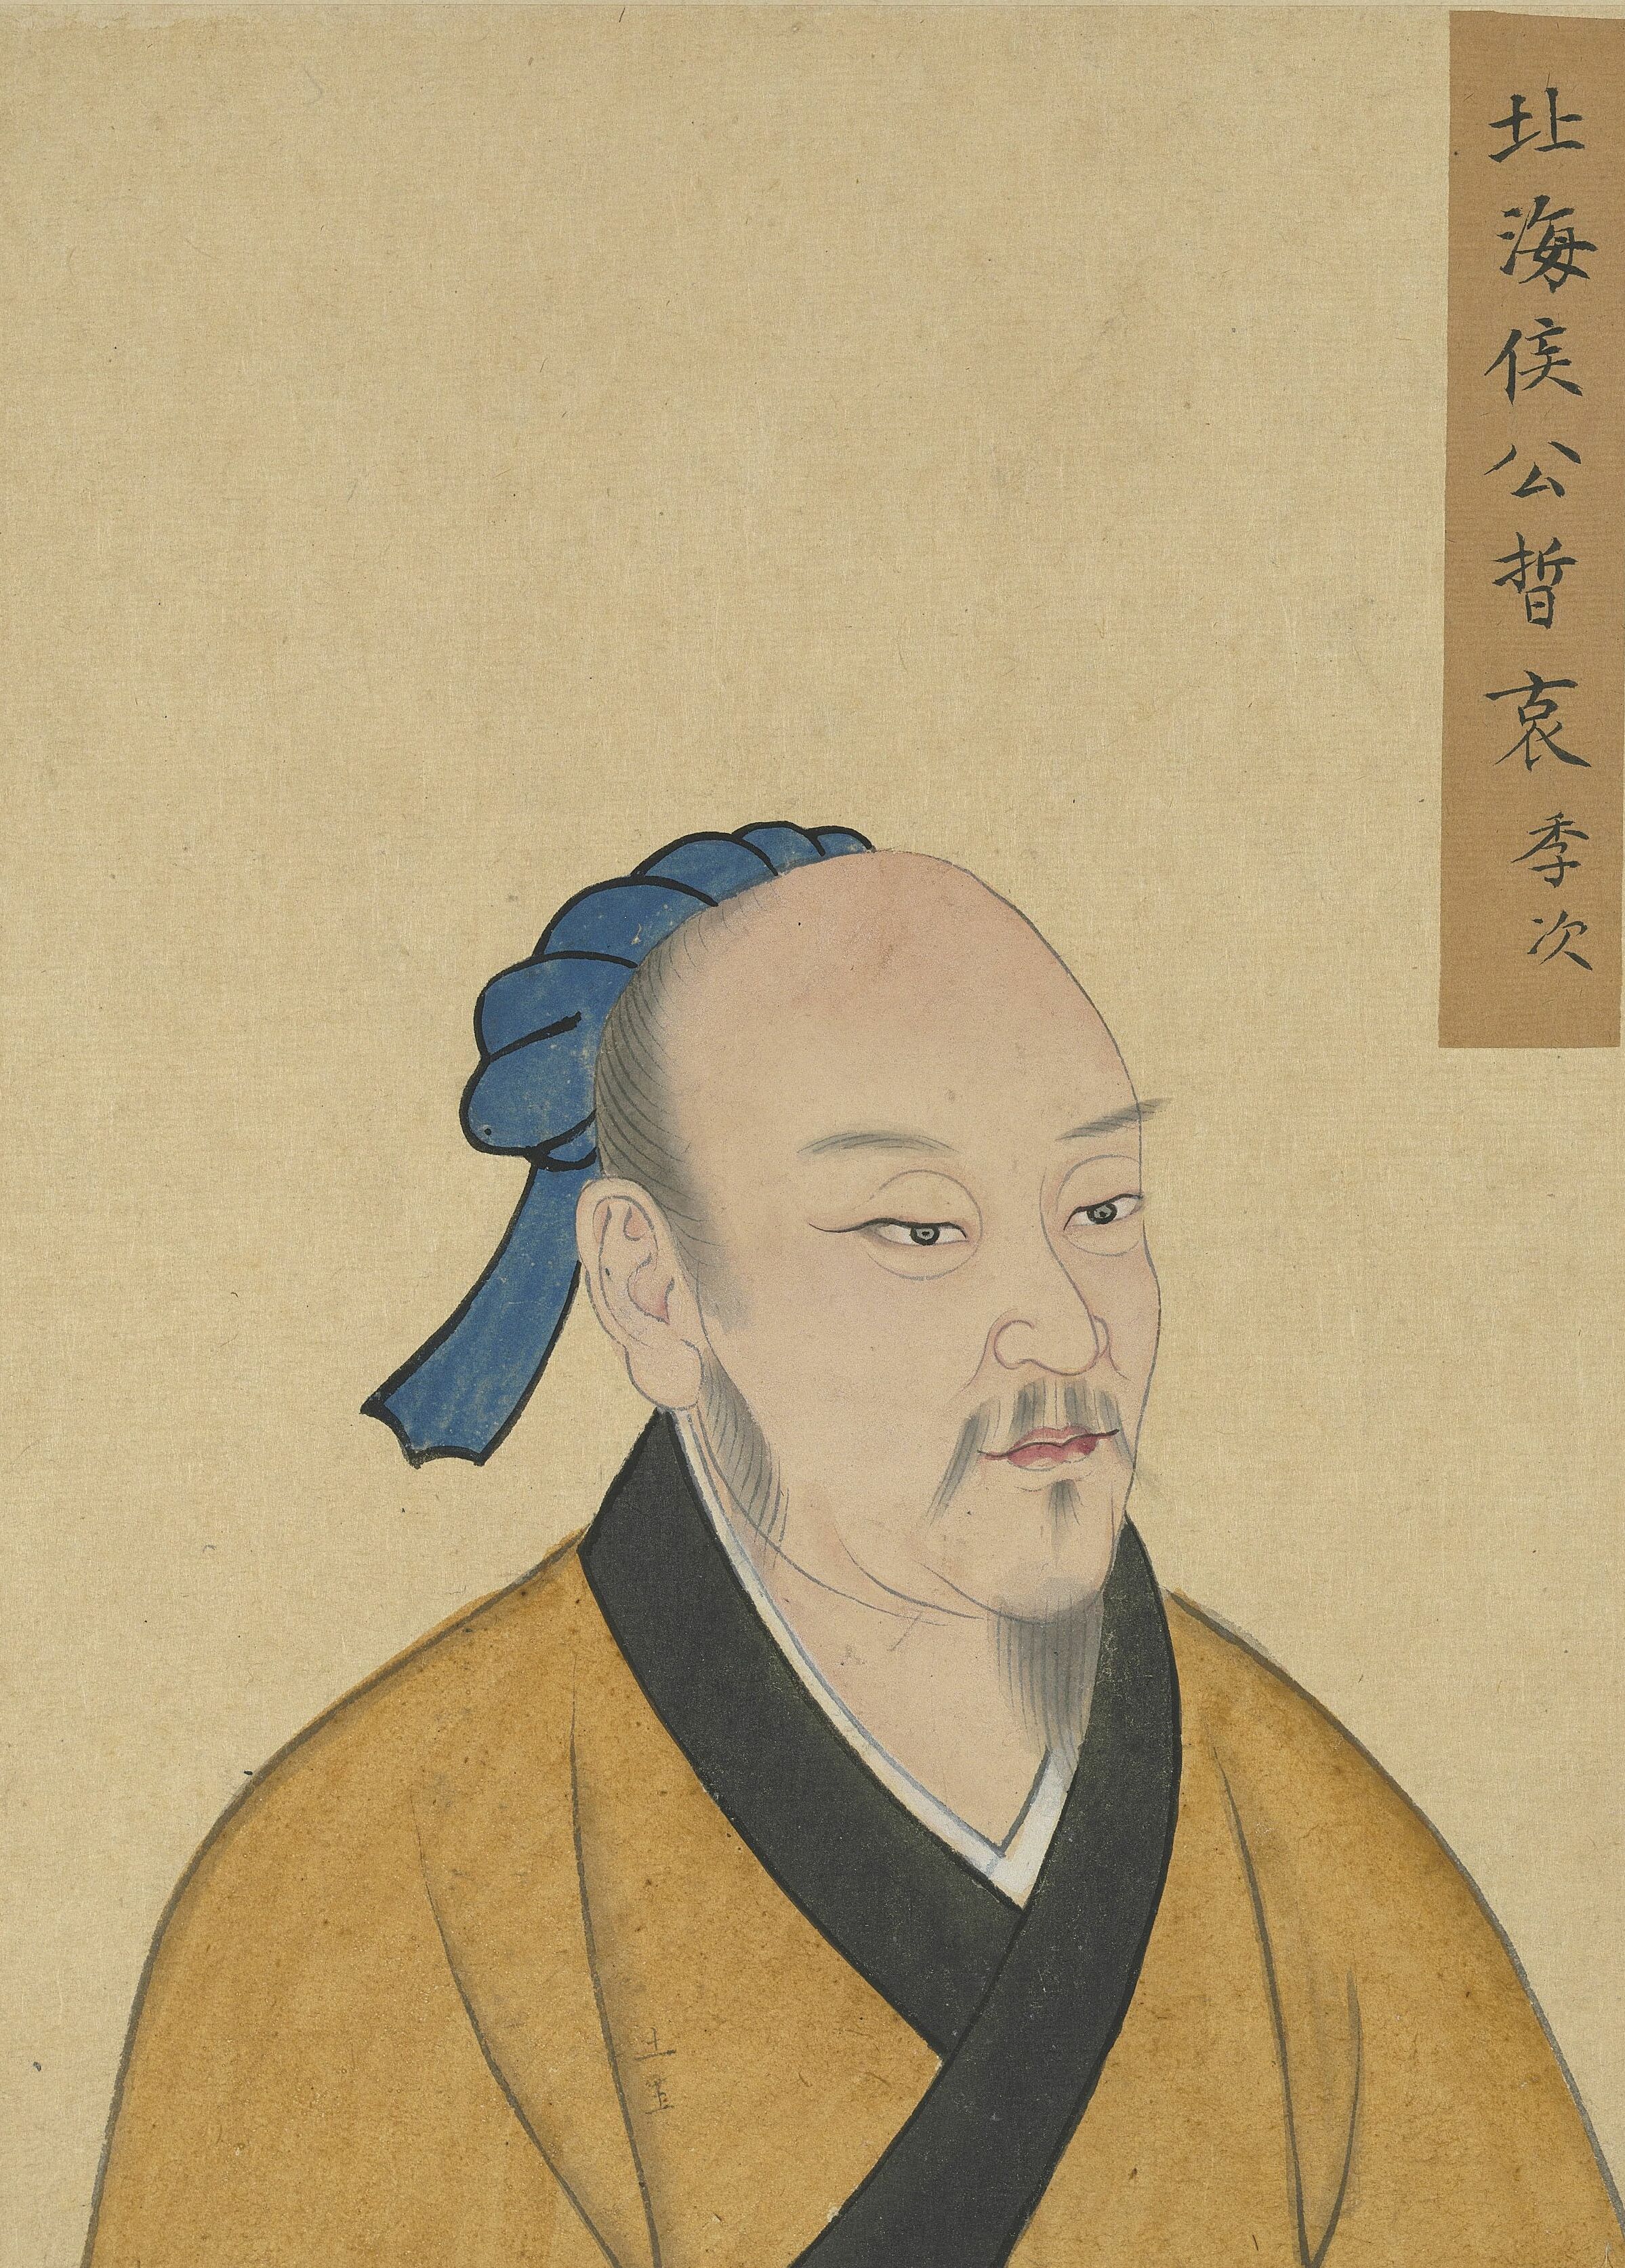 北海侯公晳哀季次